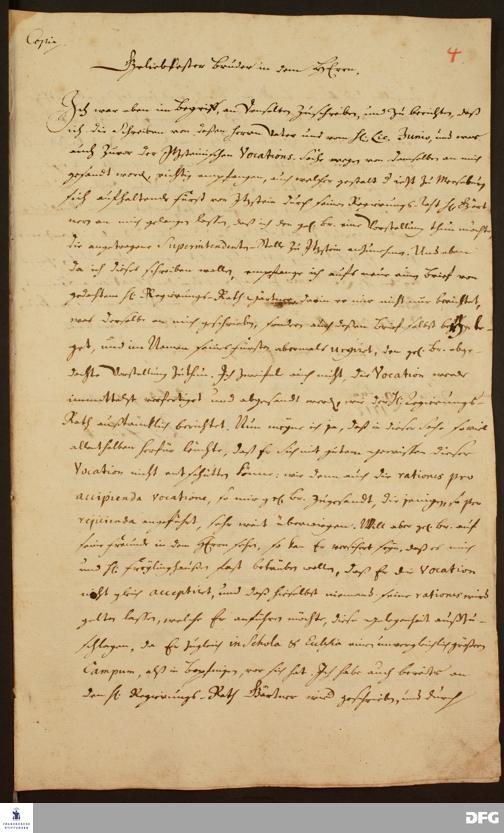 Copia.
4
Geliebtester Bruder in dem HErrn,
Ich war eben im Begriff, an denselben zu schreiben, und zu berichten, daß
ich die Schreiben von deßen Herrn Vater und von H. Lic. Junio, und was
auch zuvor der Itzsteinischen Vocations-Sache wegen von demselben an mich
gesandt word., richtig empfangen, auch welcher gestalt d. ietzt zu Merseburg
sich aufhaltende Fürst von Itzstein durch seinen Regierungs-Rath H. Gärt
nern an mich gelangen lassen, daß ich dem gel. Br. eine Vorstellung thun möchte
die angetragene Superintendenten-Stelle zu Itzstein anzunehmen. Und eben
da ich dieses schreiben wollen, empfange ich aufs neue einen Brief von
gedachtem H. Regierungs-Rath Gärtner darin er mir nicht nur berichtet,
was derselbe an mich geschrieben, sondern auch deßen Brief selbst beygele
get, und im Namen seines Fürsten abermals urgiret, dem gel. Br. abge-
dachte Vorstellung zu thun. Ich zweifele auch nicht, die Vocation werde
immittelst verfertiget und abgesandt word., wie der H. Regierungs-
Rath ausdrücklich berichtet. Nun möge ich ja, daß in dieser Sache so viel
allenthalben herfür leuchte, daß Er sich mit gutem Gewissen dieser
Vocation nicht entschütten könne: wie denn auch die rationes pro
accipienda vocatione, so mir gel. Br. zugesandt, die jenigen, so pro
rejicienda angeführt, sehr weit überwiegen. Will aber gel. Br. auf
seine Freunde in dem HErrn sehen, so kan Er versichert seyn, daß es mich
und H. Freylinghausen fast betrüben wollen, daß Er die Vocation
nicht gleich acceptiret, und daß hieselbst niemand seine rationes wird
gelten lassen, welche Er anführen möchte, diese Gelegenheit auszu-
schlagen, da Er zugleich in Schola & Ecclesia einen unvergleichlich größern
Campum, als in Bopfingen, vor sich hat. Ich habe auch bereits an
den H. Regierungs-Rath Gärtner wied. geschrieben, und durch
FRANCKESCHE STIFTUNGEN
DFG